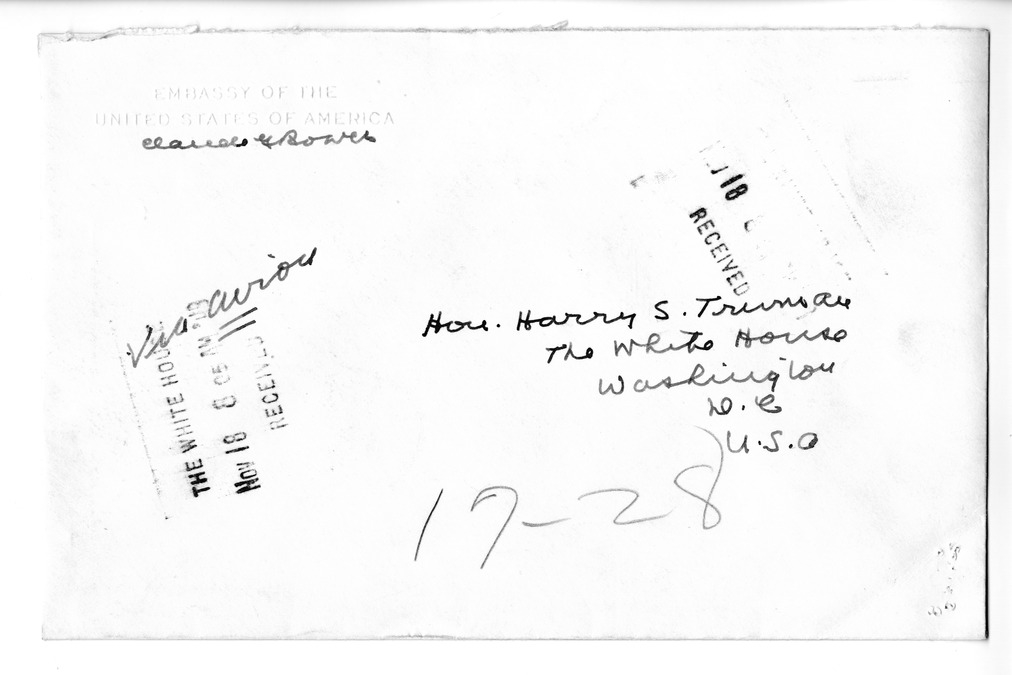 EMBASSY OF THE
UNITED STATES OF AMERICA
Claude G Bowers
Via avion
THE WHITE HOUSE
NOV 18 8 05 AM
RECEIVED
18
RECEIVED
Hon. Harry S. Truman
The White House
Washington
D.C
U.S.A
17-28